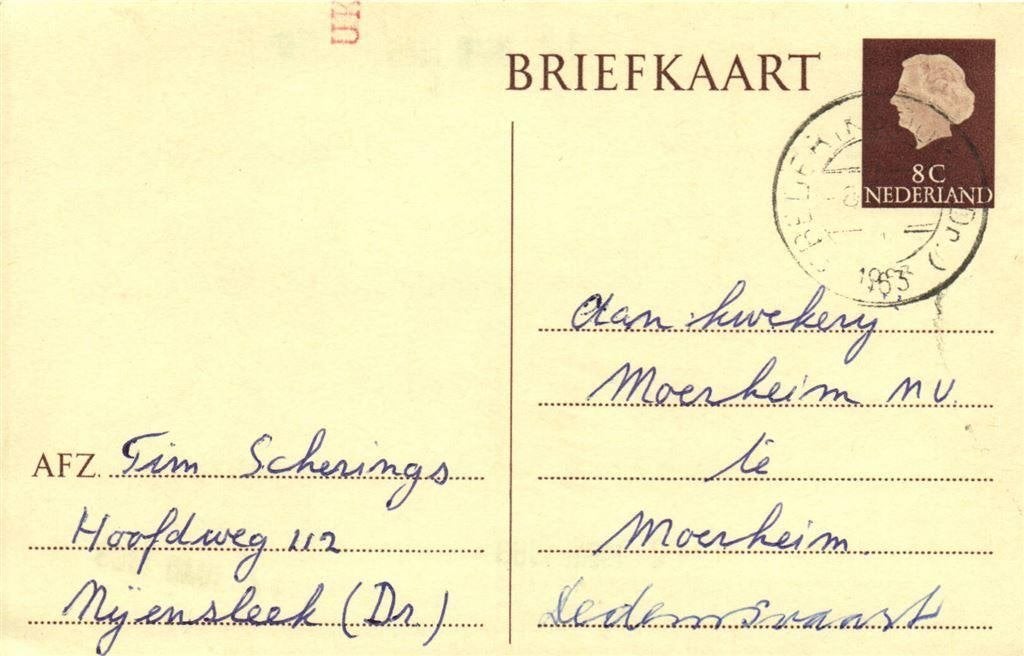 UK
BRIEFKAART
8 C
NEDERLAND
1963
Aan kwekery
Moerheim N V.
te
Moerheim.
Dedemsvaart
AFZ. Tim Scherings
Hoofdweg 112
Nijensleek (Dr)